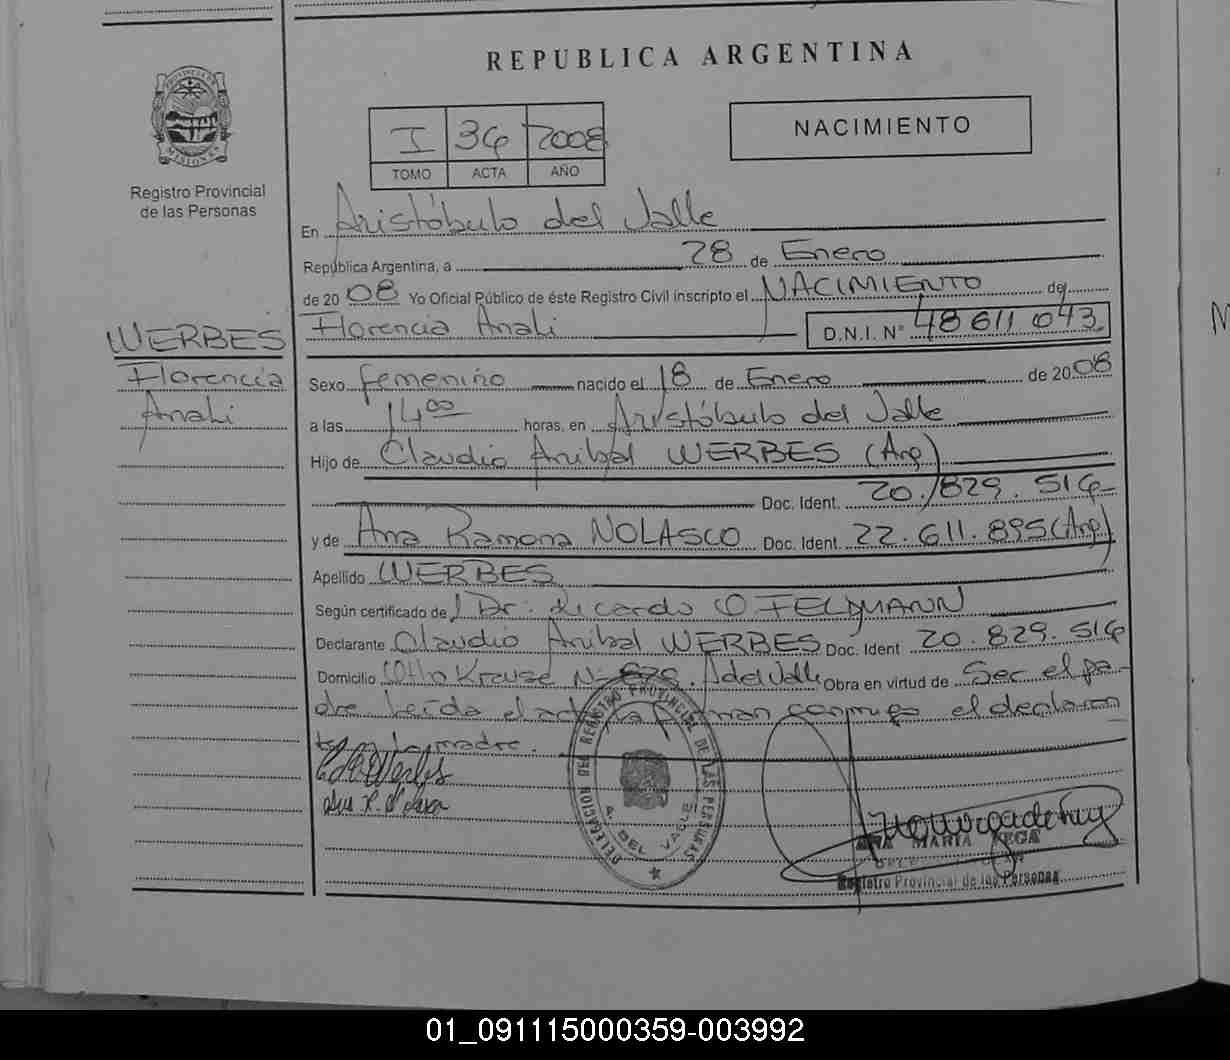 REPUBLICA ARGENTINA
PROVINCIA DE
MISIONES
Registro Provincial
de las Personas
I 36 2008
TOMO ACTA AÑO
NACIMIENTO
En Aristóbulo del Valle
República Argentina, a 28 de Enero
de 2008 Yo Oficial Público de éste Registro Civil inscripto el NACIMIENTO de
Florencia Anali D.N.I. N° 48 611 043
WERBES
Florencia
Anali
Sexo femenino nacido el 18 de Enero de 2008
a las 14 00 horas, en Aristóbulo del Valle
Hijo de Claudio Anibal WERBES (Arg)
Doc. Ident. 20.829.516
y de Ana Ramona NOLASCO Doc. Ident 22.611.895 (Arg)
Apellido WERBES
Según certificado de Dr: Ricardo O FELDMANN
Declarante Claudio Anibal WERBES Doc. Ident 20.829.516
Domicilio Otto Krause N° A del Valle Obra en virtud de Ser el pa-
dre Leída el acta la firman conmigo el declaran
te y la madre.
DELEGACION DEL REGISTRO PROVINCIAL DE LAS PERSONAS
A. DEL VALLE
ANA MARIA VEGA
Registro Provincial de las Personas
01_091115000359-003992